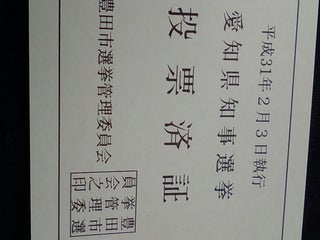 平成31年2月3日執行
愛知県知事選挙
投票済証
豊田市選挙管理委員会
豊田市選
挙管理委
員会之印